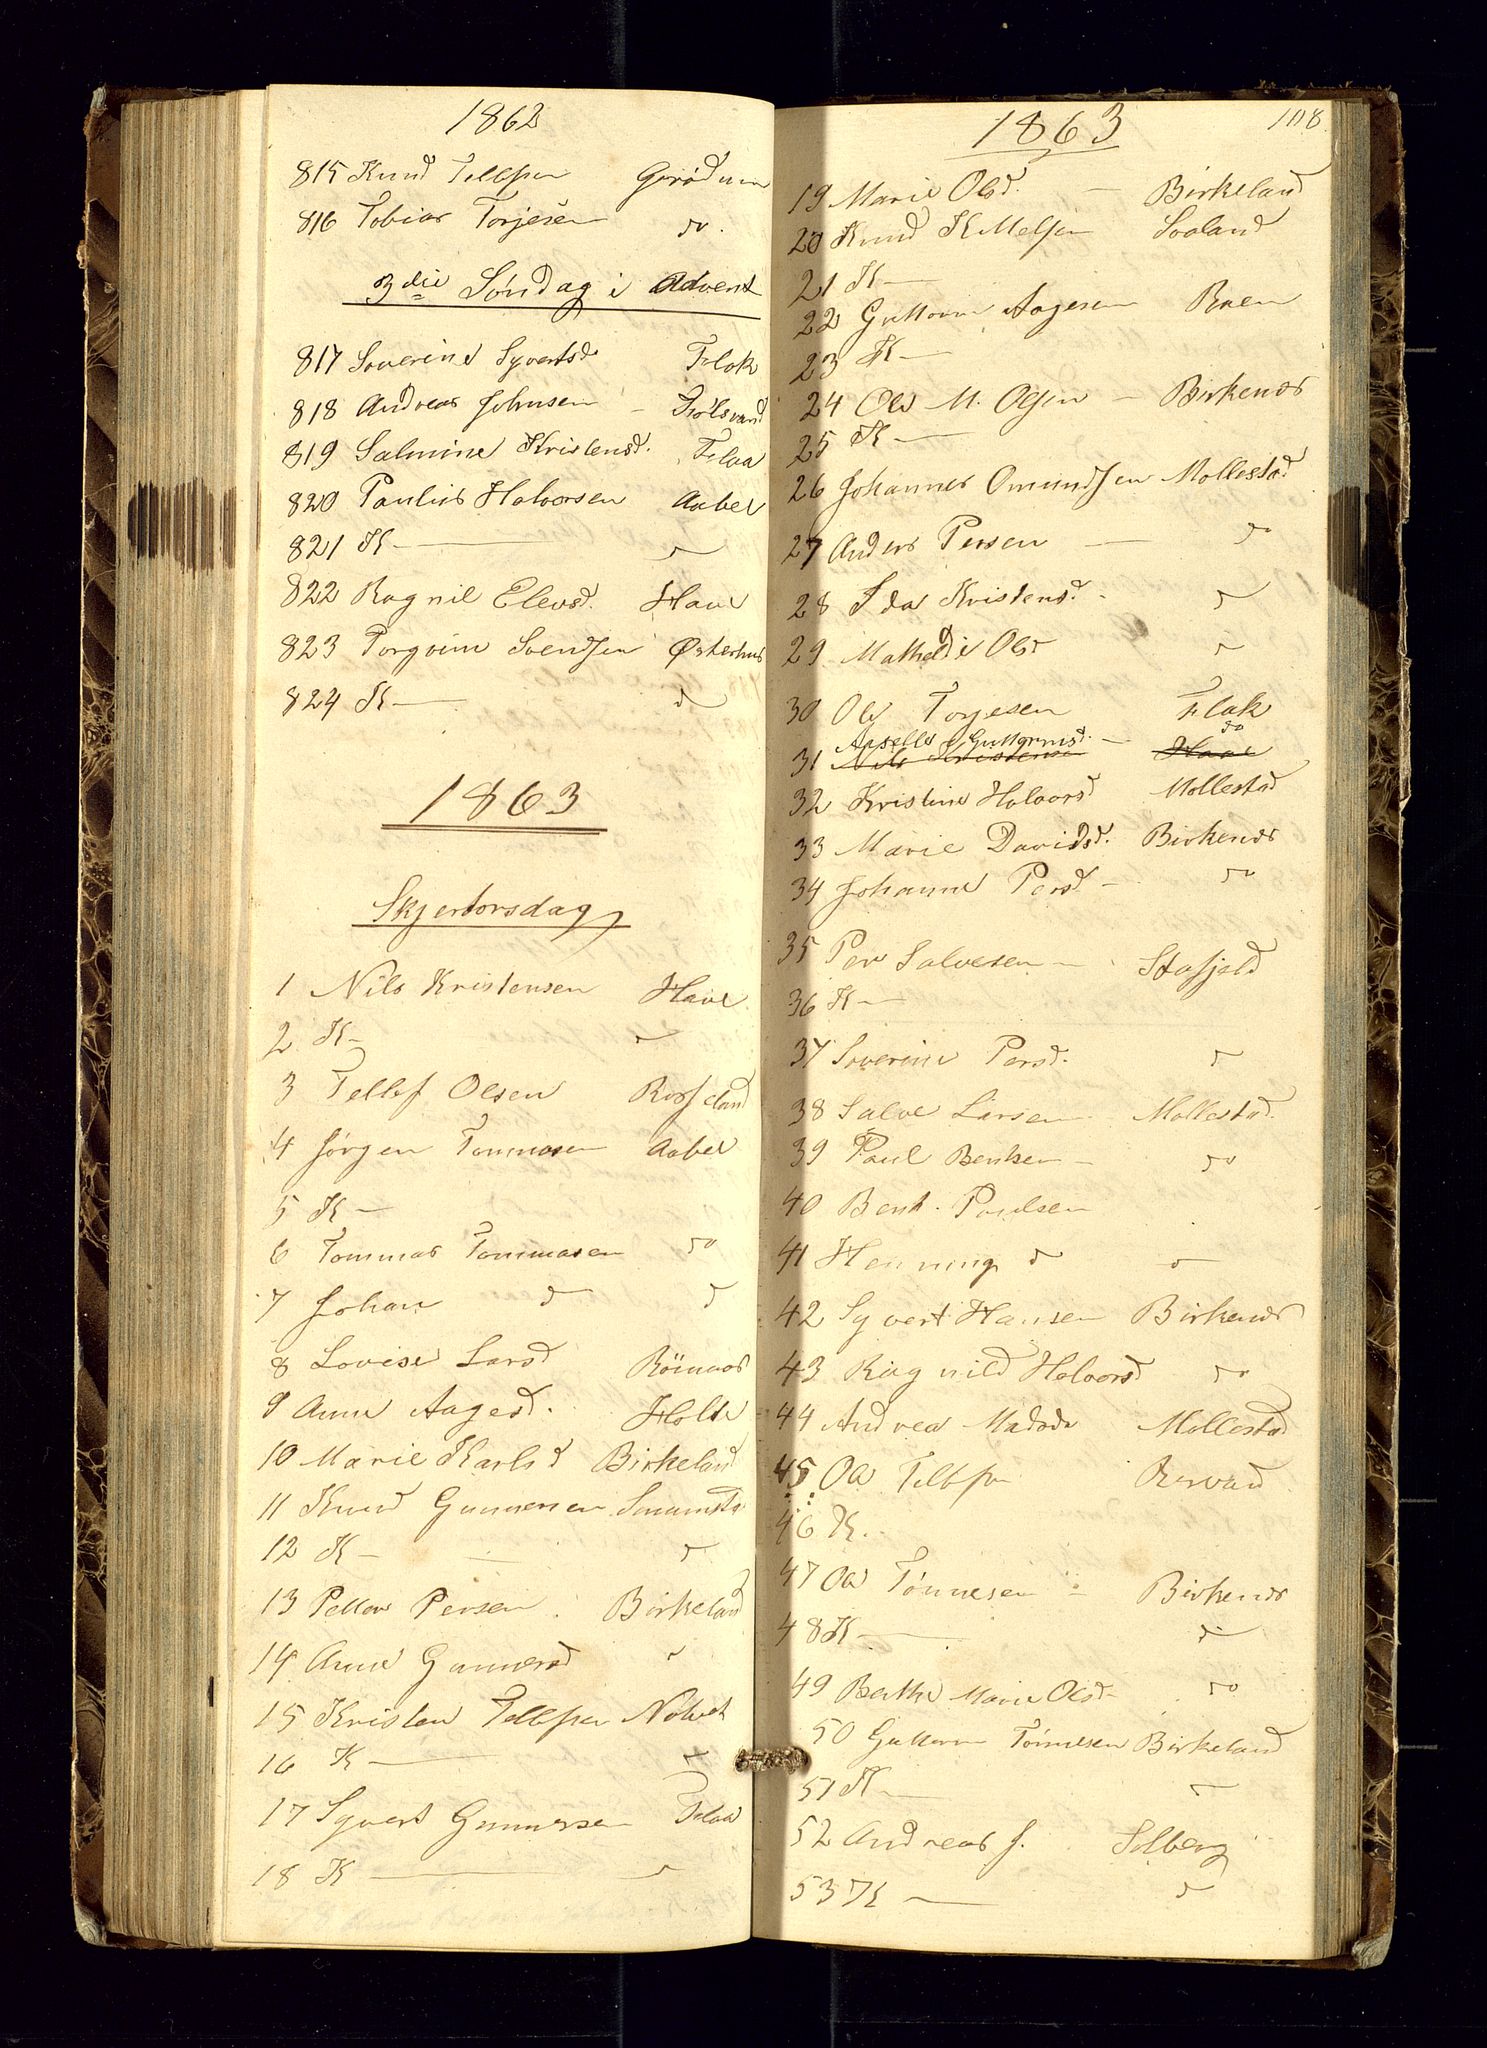 1862
815 Knud Tellefsen Grødum
816 Tobias Torjesen do.
3die Søndag i Advent
817 Soverine Syvertsd Flak
818 Andreas Johnsen
819 Salmine Kristensd. Flaa
820 Paulus Halvorsen Aabel
821 K — d
822 Ragnil Elevsd. Have
823 Torgrim Svendsen Østerhus
824 K — d
1863
Skjertorsdag
1 Nils Kristensen Have
2 K — d
3 Tellef Olsen Rosseland
4 Jørgen Tommasen Aabel
5 K —
6 Tommas Tommasen do
7 Johan d d
8 Lovise Larsd
9 Anne Aagesd. Holte
10 Marie Karlsd Birkeland
11 Knud Gunnersen
12 K — d
13 Petter Persen Birkeland
14 Anne Gunnersd d
15 Kristen Tellefsen
16 K — d
17 Syvert Gunnersen Flaa
18 K — d
1863 108
19 Marie Olsd. — Birkeland
20 Knud Kittelsen
21 K —
22 Guttorm Aagesen Roen
23 K —
24 Ole M. Olsen — Birkenes
25 K —
26 Johannes Omundsen Mollestad
27 Anders Persen — do
28 Ida Kristensd. d
29 Mathilde Olsd d
30 Ole Torjesen Flak
Guttormsd. — do
31 Nils Kristensen Have
32 Kristine Halvorsd Mollestad
33 Marie Davidsd. Birkenes
34 Johanne Persd — do
35 Per Salvesen —
36 K —
37 Soverine Persd. d
38 Salve Larsen Mollestad
39 Paul Bentsen — do
40 Bent Paulsen
41 Henning d d
42 Syvert Hansen Birkenes
43 Ragnild Halvorsd do
44 Andrea Madsd Mollestad
45 Ole Tellefsen
46 K.
47 Ole Tønnesen — Birkenes
48 K — d
49 Berthe Marie Olsd do
50 Guttorm Tønnesen Birkeland
51 K — d
52 Andreas J. Solberg
53 K — d